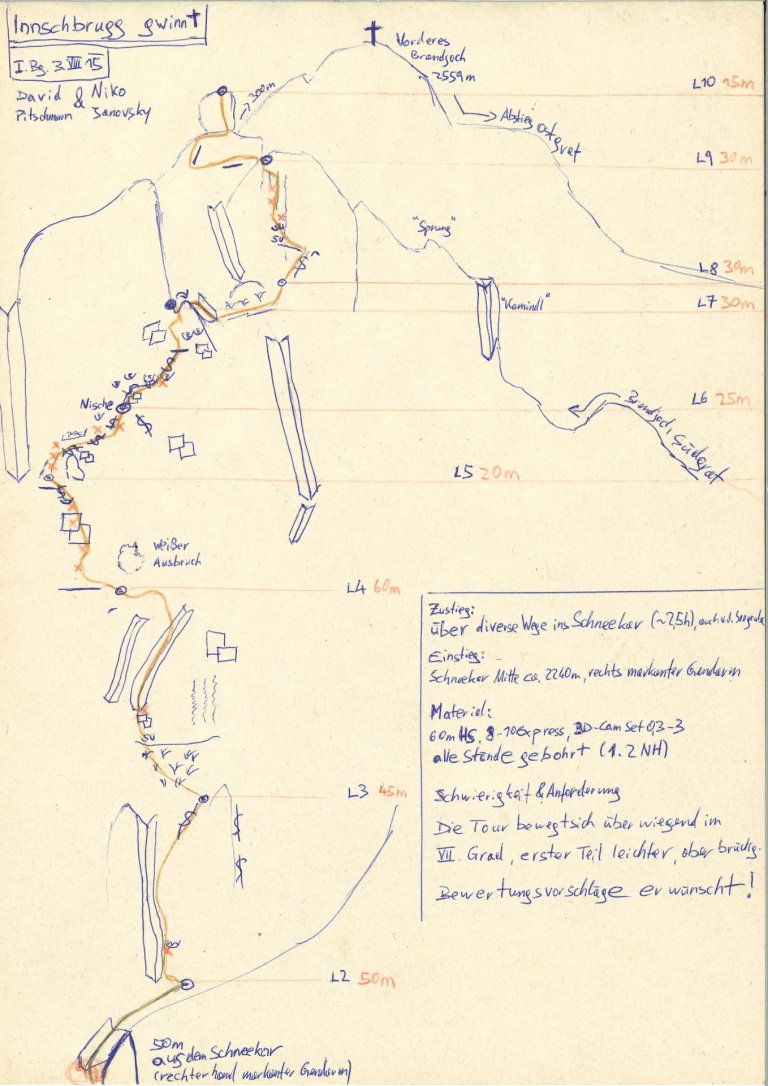 Innschbrugg gwinnt
I. Bg. 3. VIII 15
David & Niko
Pitschmann Janovsky
→ 300m
Vorderes
Brandjoch
2559m
Abstieg Ostgrat
L10 15m
L9 30m
"Sprung"
L8 30m
L7 30m
"Kamindl"
L6 25m
Brandjoch Südgrat
Nische
L5 20m
Weißer
Ausbruch
L4 60m
SU
SU
L3 45m
L2 50m
50m
aus dem Schneekar
(rechterhand markanter Gendarm)
Zustieg:
über diverse Wege ins Schneekar (~2,5h), auch v.d. Seegrube
Einstieg:
Schneekar Mitte ca. 2240m, rechts markanter Gendarm
Material:
60m HS, 8-10 Express, 3D-Cam Set 0,3-3
alle Stände gebohrt (1. 2 NH)
Schwierigkeit & Anforderung
Die Tour bewegt sich überwiegend im
VII. Grad, erster Teil leichter, aber brüchig.
Bewertungsvorschläge erwünscht!